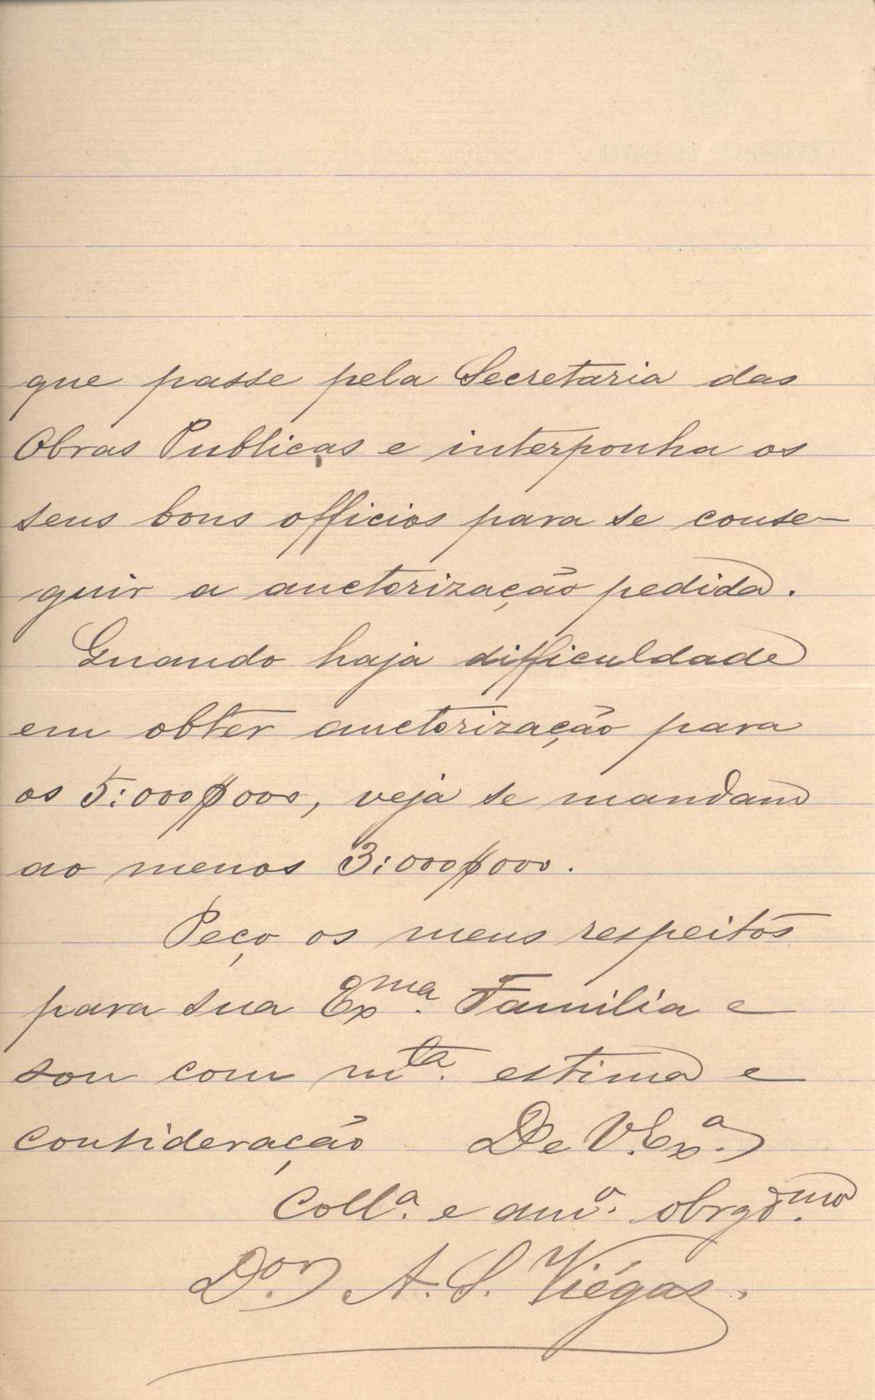 que passe pela Secretaria das
Obras Publicas e interponha os
seus bons officios para se conse-
guir a auctorização pedida.
Quando haja difficuldade
em obter auctorização para
os 5:000$000, veja se mandam
ao menos 3:000$000.
Peço os meus respeitos
para sua Exma. Familia e
sou com mta. estima e
consideração De V. Exa.
Colla. e amo. obrgdmo.
Dor. A. S. Viégas.